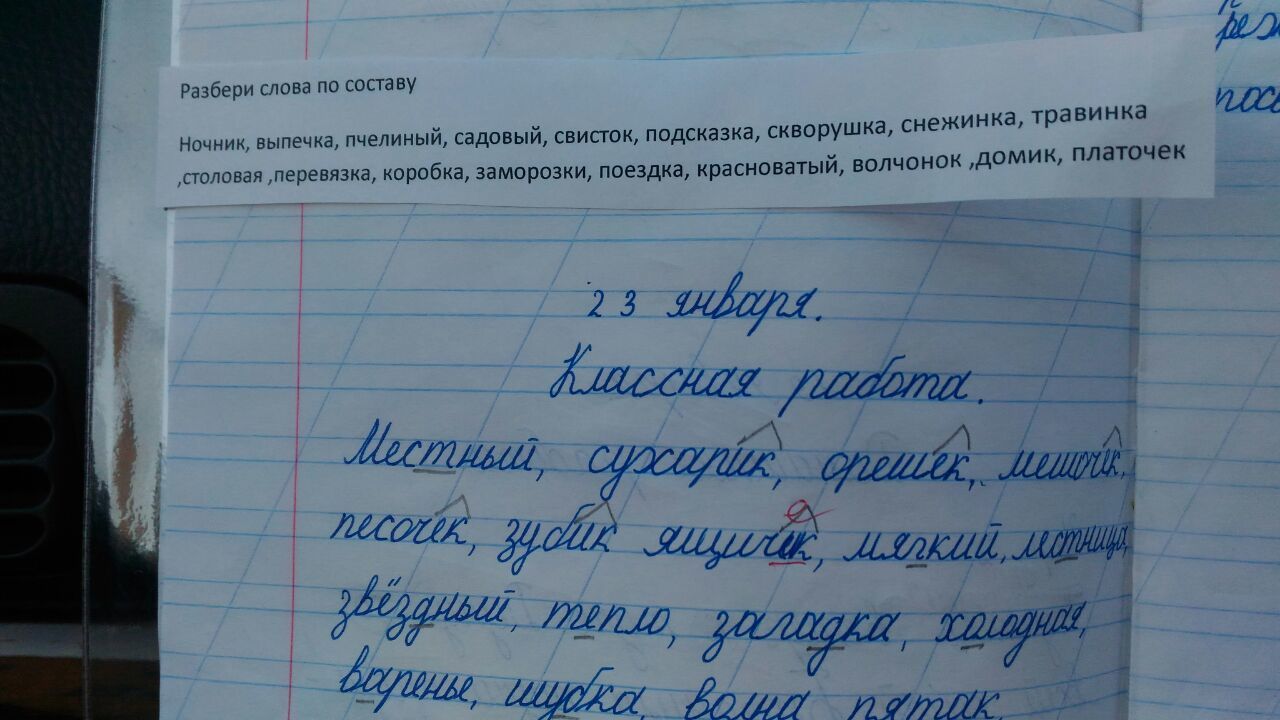 Разбери слова по составу
Ночник, выпечка, пчелиный, садовый, свисток, подсказка, скворушка, снежинка, травинка
,столовая ,перевязка, коробка, заморозки, поездка, красноватый, волчонок ,домик, платочек
23 января.
Классная работа.
Местный, сухарик, орешек, мешочек,
песочек, зубик ящичек, мягкий, лестница,
звёздный, тепло, загадка, холодная,
варенье, шубка, волна пятак.